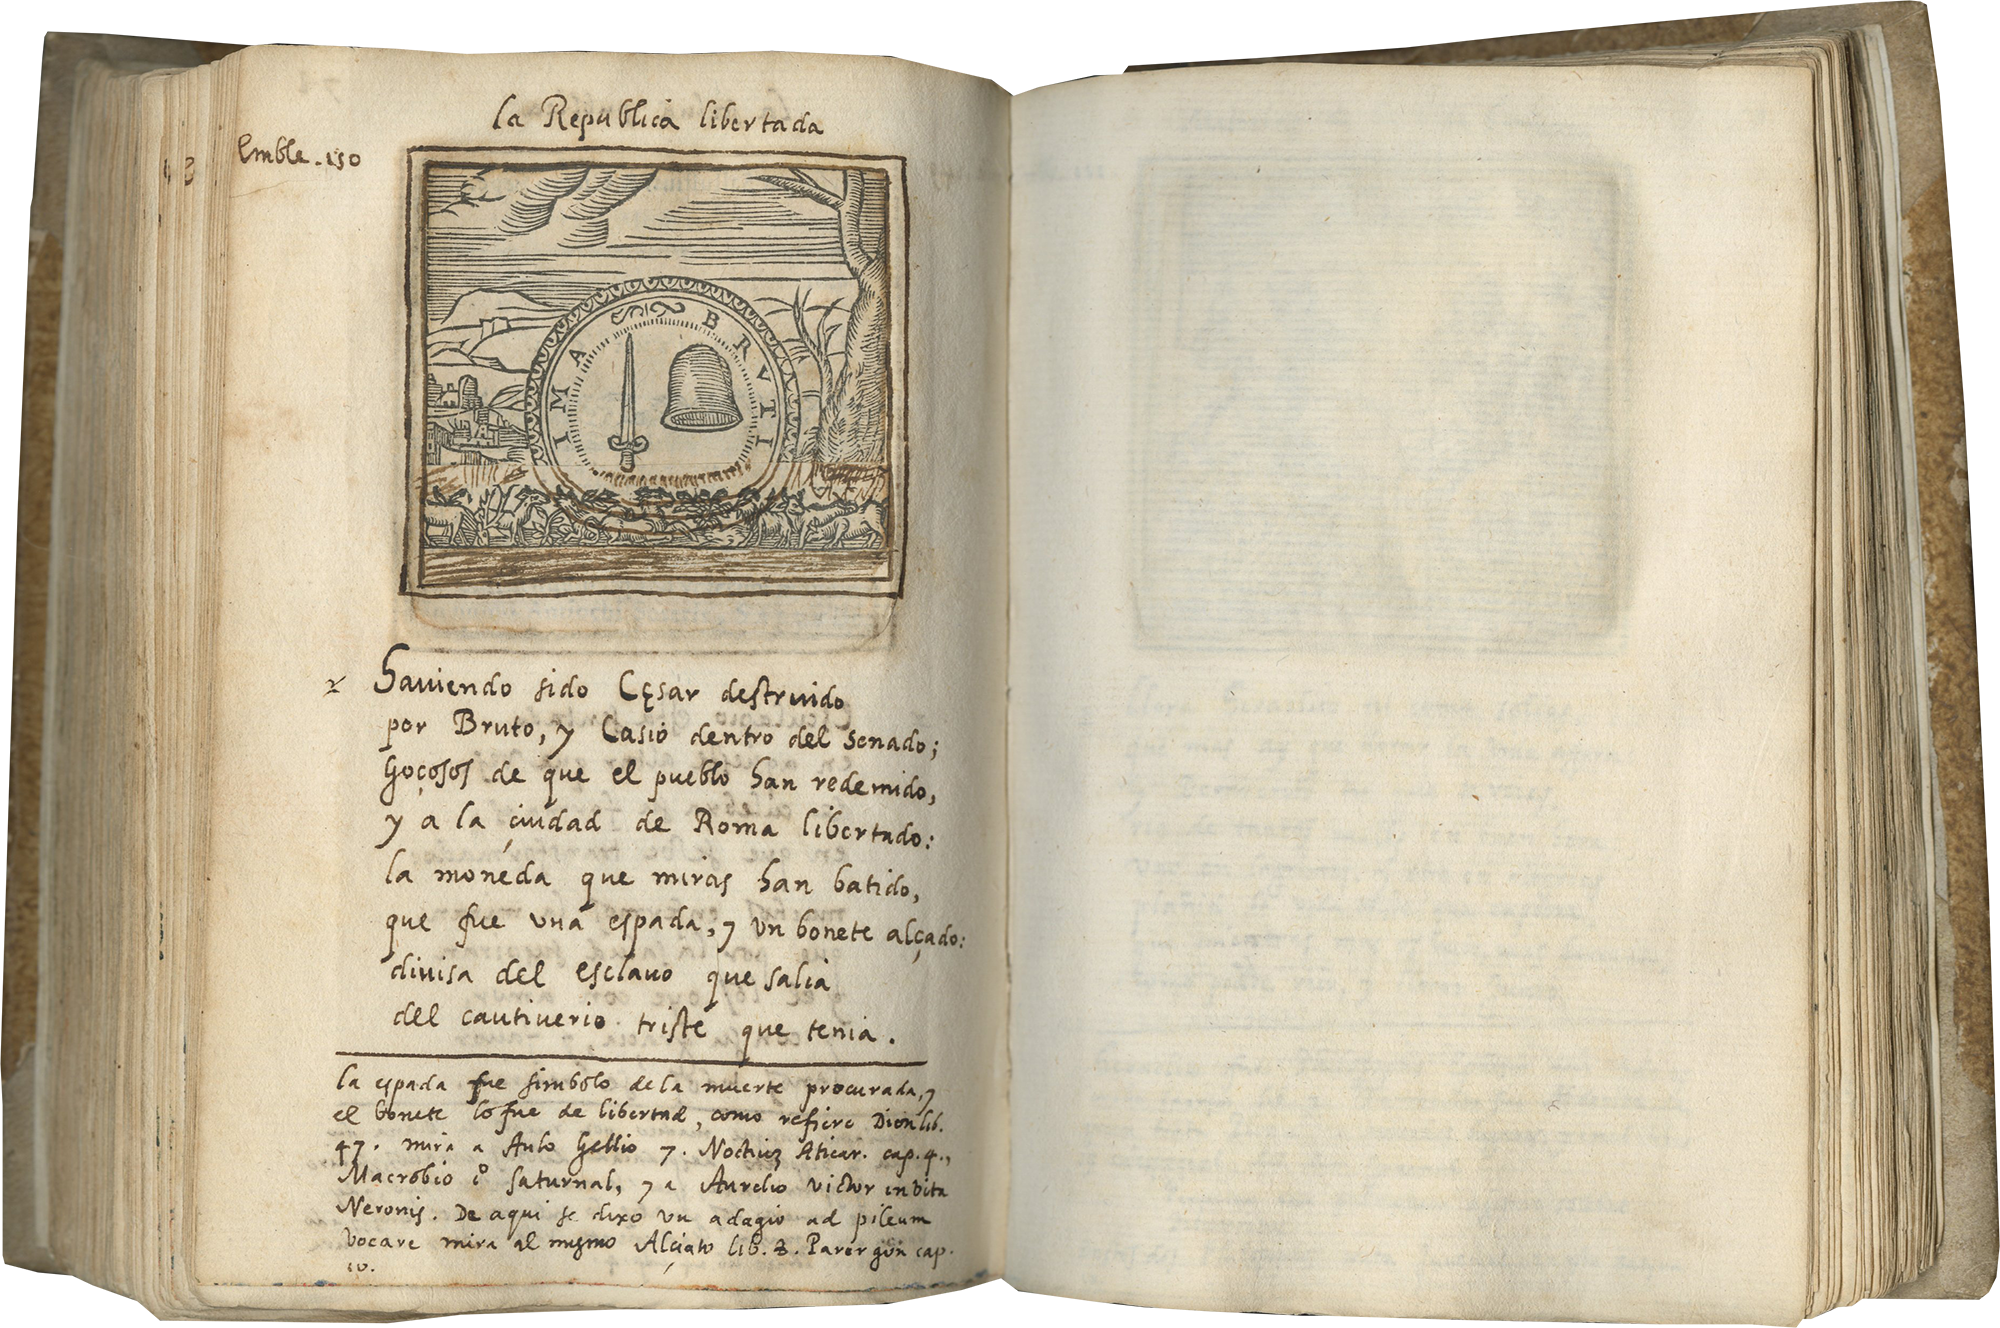 la Republica libertada
Emble. 150
IMA BRVTI
Hauiendo sido Cęsar destruido
por Bruto, y Casio dentro del senado;
Goçosos de que el pueblo han redemido,
y a la çiudad de Roma libertado:
la moneda que miras han batido,
que fue vna espada, y vn bonete alçado:
diuisa del esclauo que salia
del cautiuerio triste que tenia.
la espada fue simbolo de la muerte procurada, y
el bonete lo fue de libertad, como refiere Dion lib.
47. mira a Aulo Gellio 7. Noctiũ Aticar. cap. 4.,
Macrobio saturnal, y a Aurelio victor in vita
Neronis. De aqui se dixo vn adagio ad pileum
vocare mira al mismo Alçiato lib. 2. Parergon cap.
10.